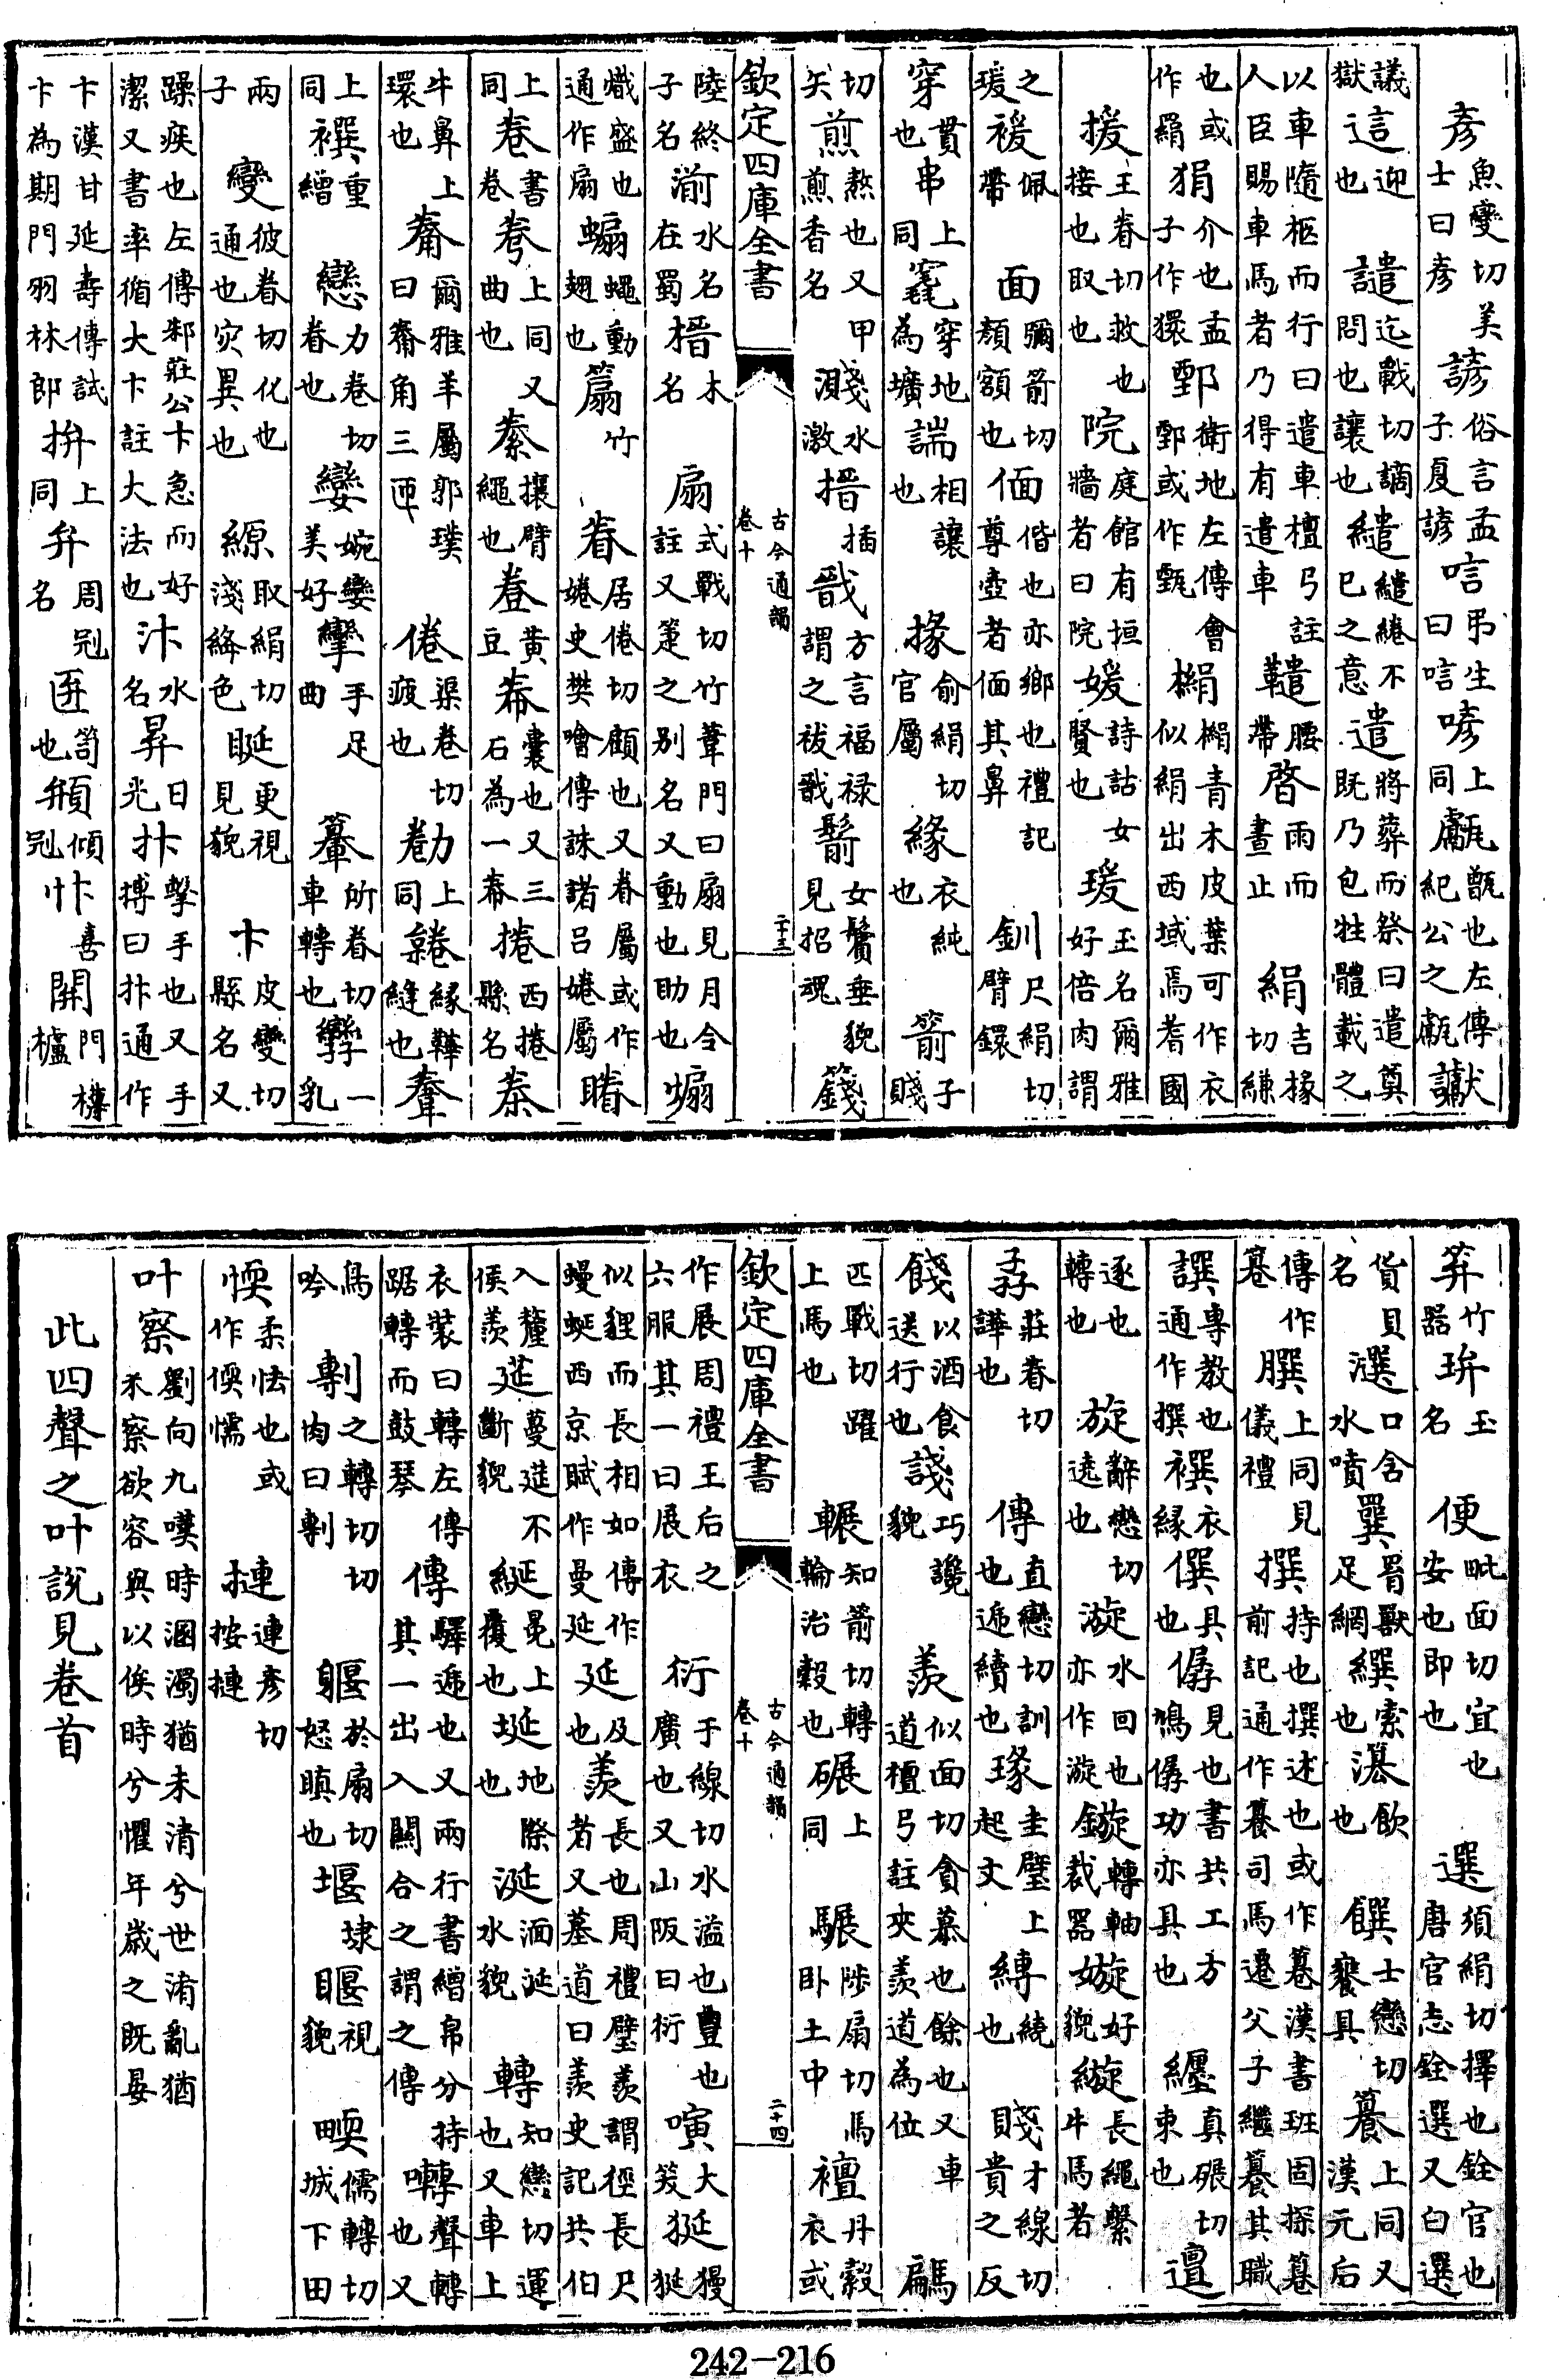 彦魚變切美士曰彦諺俗言孟子夏諺唁弔生曰唁喭上同甗甑也左傳紀公之甗讞
議獄這迎也譴迄戰切謫問也讓也繾繾綣不已之意遣將葬而祭曰遣奠既乃包牲體載之
以車隨柩而行曰遣車檀弓註人臣賜車馬者乃得有遣車鞬腰帶啓雨而晝止絹吉掾切縑
也或作羂狷介也孟子作獧鄄衛地左傳會鄄或作甄梋梋青木皮葉可作衣似絹出西域焉耆國
援王眷切救也接也取也院庭館有垣牆者曰院媛詩詁女賢也瑗玉名爾雅好倍肉謂
之瑗褑佩帶面彌箭切顏額也偭偝也亦鄉也禮記尊壺者偭其鼻釧尺絹切臂鐶
穿貫也串上同竁穿地為壙諯相讓也掾俞絹切官屬緣衣純也箭子賤
切矢煎熬也又甲煎煎香名濺水激搢插戩方言福祿謂之祓戩鬋女鬢垂貌見招魂籛
欽定四庫全書 古今通韻 卷十 二十三
陸終子名湔水名在蜀榗木名扇式戰切竹葦門曰扇見月令註又箑之別名又動也助也煽
熾盛也通作扇蝙蠅動翅也篇竹眷居倦切顧也又眷屬或作婘史樊噲傳誅諸呂婘屬睠
上同卷書卷弮上同又曲也絭攘臂繩也黃豆帣囊也又三石為一帣捲西捲縣名桊
牛鼻上環也觠爾雅羊屬郭璞曰觠角三匝倦渠卷切疲也勌上同䊎緣鞾縫也奆
上同襈重繒戀力卷切眷也孌婉孌美好攣手足曲䡱所眷切車轉也孿一乳
兩子變彼眷切化也通也災異也縓取絹切淺絳色䀽更視見貌卞皮變切縣名又
躁疾也左傳邾莊公卞急而好潔又書率循大卞註大法也汴水名昪日光抃擊手也又手搏曰抃通作
卞漢甘延壽傳試卞為期門羽林郎拚上同弁周冠名匥笥也頯傾冠忭喜開門欂櫨
笲竹器玣玉名便毗面切宜也安也即也選須絹切擇也銓官也唐官志銓選又白選
貨貝名潠口含水噴䍻罥獸足網繏索也㵟飲也饌士戀切餐具籑上同又漢元后
傳作䉵䑂上同見儀禮撰持也撰述也或作䉵漢書班固探䉵前記通作籑司馬遷父子繼籑其職
譔專教也通作撰襈衣緣僎具也僝見也書共工方鳩僝功亦具也纏真碾切束也邅
逐也轉也㫌辭戀切遶也漩水回也亦作漩鏇轉軸裁器嫙好貌縼長繩繫牛馬者
孨莊眷切謹也傳直戀切訓也遞續也瑑圭璧上起文縳繞也賤才線切貴之反
餞以酒食送行也諓巧讒貌羨似面切貪慕也餘也又車道檀弓註夾羨道為位騗
匹戰切躍上馬也輾知箭切轉輪治穀也碾上同驏陟扇切馬臥土中襢丹縠衣或
欽定四庫全書 古今通韻 卷十 二十四
作展周禮王后之六服其一曰展衣衍于線切水溢也豐也廣也又山阪曰衍㖶大笑狿獌狿
似貍而長相如傳作蟃蜒西京賦作曼延延及也羨長也周禮璧羨謂徑長尺者又墓道曰羨史記共伯
入釐侯羨莚蔓莚不斷貌綖冕上覆也埏地際也涎湎涎水貌轉知戀切運也又車上
衣裝曰轉左傳踞轉而鼓琴傳驛遞也又兩行書繒帛分持其一出入關合之謂之傳囀聲轉也又
鳥吟剸之轉切切肉曰剸躽於扇切怒瞋也堰埭䁙視貌㬉儒轉切城下田
愞柔怯也或作偄懦摙連彥切按摙
叶察劉向九嘆時溷濁猶未清兮世淆亂猶未察欲容與以俟時兮懼年歲之既晏
此四聲之叶說見卷首
242-216